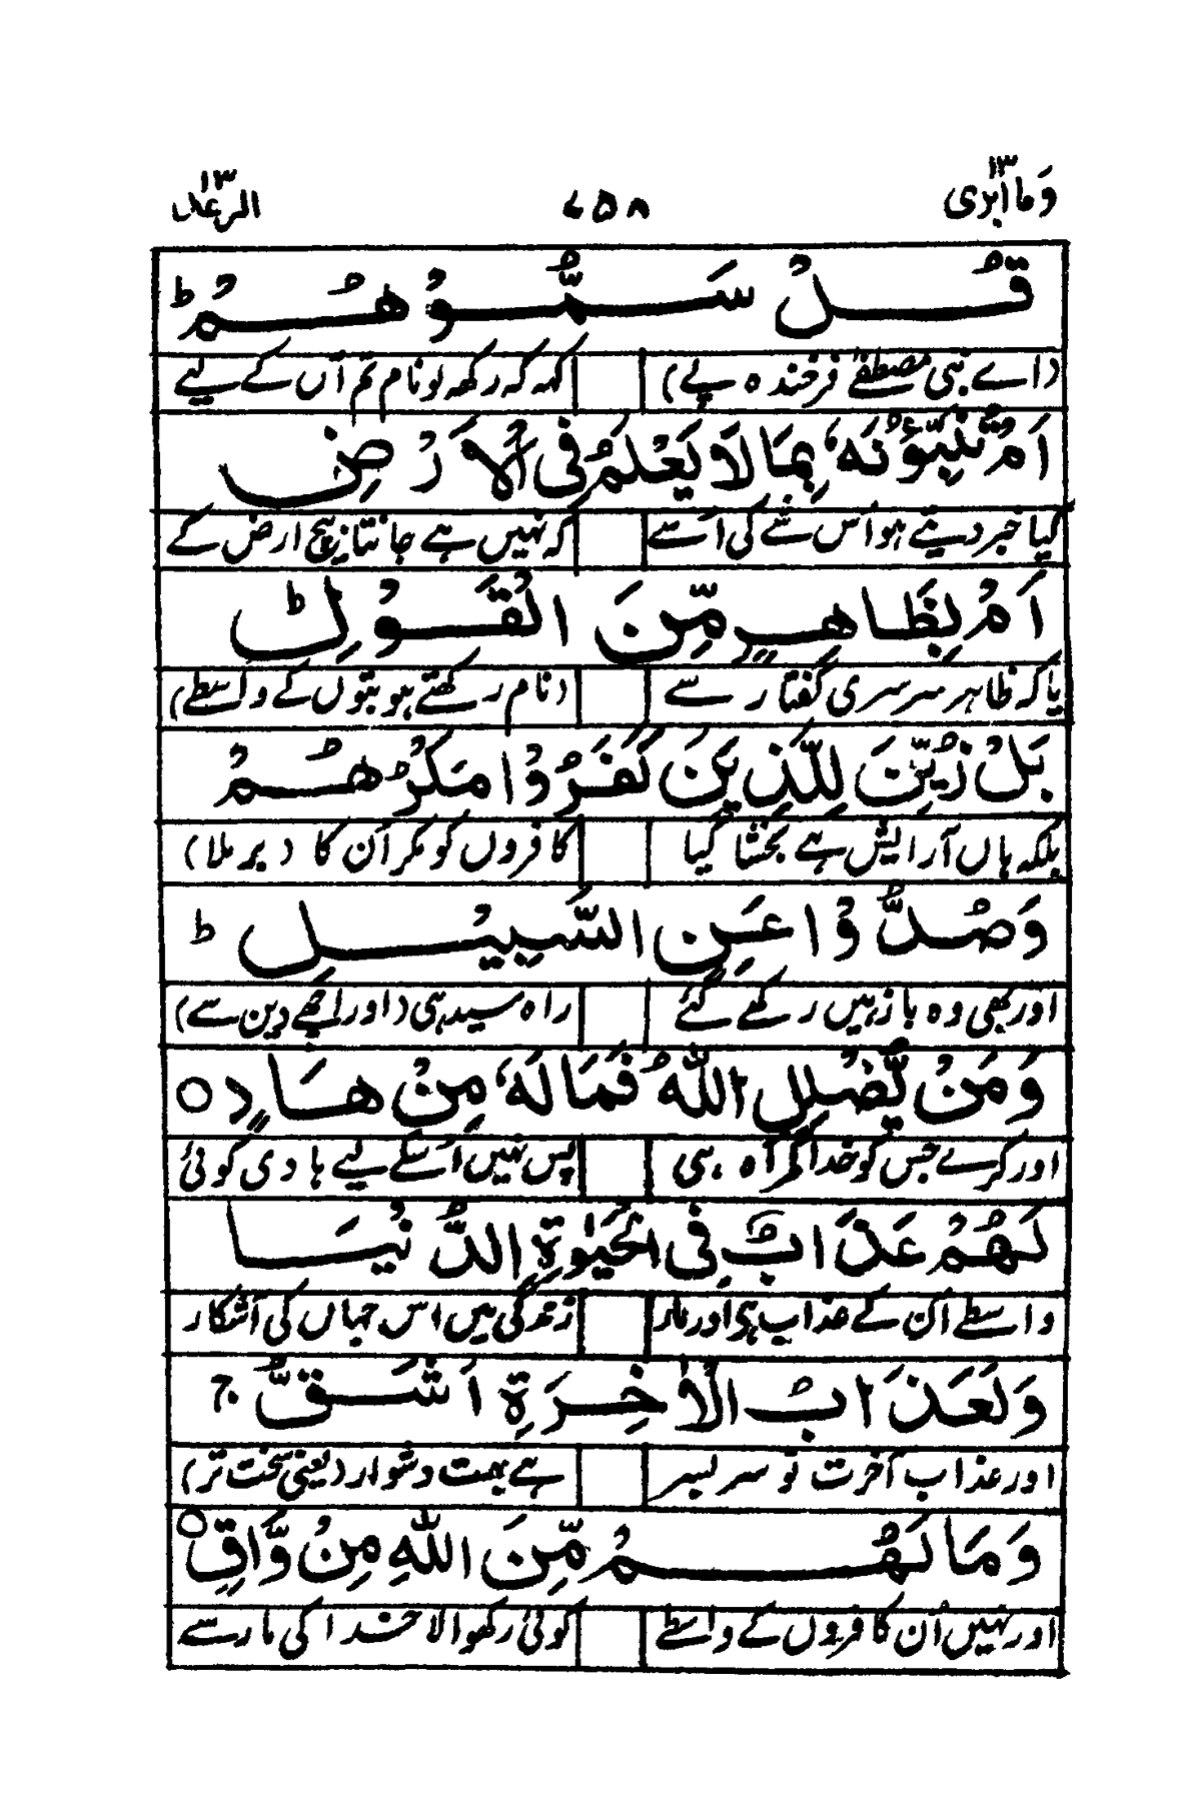 وَمَا اُبَرِّئُ ١٣ ٧٥٨ الرعد ١٣
قُلْ سَمُّوْهُمْ ؕ
(اے نبی مصطفےٰ فرخندہ پے) کہہ کہ رکھ لو نام تم اُن کے لیے
اَمْ تُنَبِّـُٔوْنَهٗ بِمَا لَا يَعْلَمُ فِی الْاَرْضِ
کیا خبر دیتے ہو اُس شے کی اُسے کہ نہیں ہے جانتا بیچ ارض کے
اَمْ بِظَاهِرٍ مِّنَ الْقَوْلِ ؕ
یا کہ ظاہر سرسری گفتار سے (نام رکھتے ہو بتوں کے واسطے)
بَلْ زُيِّنَ لِلَّذِيْنَ كَفَرُوْا مَكْرُهُمْ
بلکہ ہاں آرایش ہے بخشا گیا کافروں کو مکر اُن کا (برملا)
وَصُدُّوْا عَنِ السَّبِيْلِ ؕ
اور بھی وہ باز ہیں رکھے گئے راہ سیدھی (اور اچھے دین سے)
وَمَنْ يُّضْلِلِ اللّٰهُ فَمَا لَهٗ مِنْ هَادٍ ○
اور کرے جس کو خدا گمراہ ہی پس نہیں اُسکے لیے ہادی کوئی
لَهُمْ عَذَابٌ فِی الْحَيٰوةِ الدُّنْيَا
واسطے اُن کے عذاب ہی اور مار زندگی میں اس جہاں کی آشکار
وَلَعَذَابُ الْاٰخِرَةِ اَشَقُّ ۚ
اور عذاب آخرت تو سربسر ہے بہت دشوار (یعنی سخت تر)
وَمَا لَهُمْ مِّنَ اللّٰهِ مِنْ وَّاقٍ ○
اور نہیں اُن کافروں کے واسطے کوئی رکھوالا خدا کی مار سے